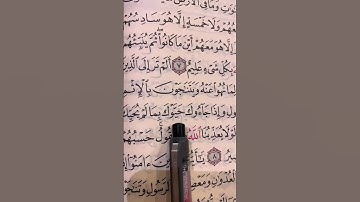 وَٰتِ وَمَا فِي ٱلْأَرْضِ
هُوَ رَابِعُهُمْ وَلَا خَمْسَةٍ إِلَّا هُوَ سَادِسُهُمْ
إِلَّا هُوَ مَعَهُمْ أَيْنَ مَا كَانُوا۟ ثُمَّ يُنَبِّئُهُم
بِكُلِّ شَىْءٍ عَلِيمٌ ٧ أَلَمْ تَرَ إِلَى ٱلَّذِينَ
لِمَا نُهُوا۟ عَنْهُ وَيَتَنَٰجَوْنَ بِٱلْإِثْمِ
وَإِذَا جَآءُوكَ حَيَّوْكَ بِمَا لَمْ يُحَيِّكَ
لَوْلَا يُعَذِّبُنَا ٱللَّهُ نَقُولُ حَسْبُهُمْ
٨ يَٰٓأَيُّهَا ٱلَّذِينَ ءَامَنُوٓا۟
ٱلْعُدْوَٰنِ وَمَعْصِيَتِ ٱلرَّسُولِ وَتَنَٰجَوْا۟